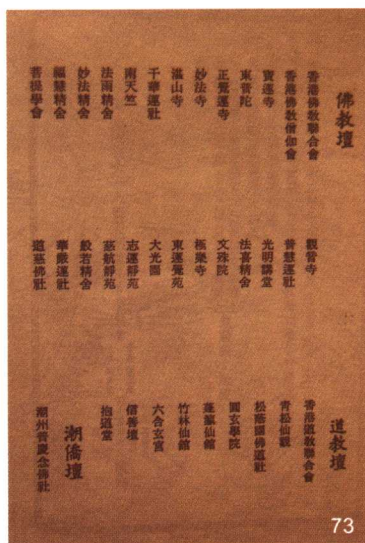 佛教壇
香港佛教聯合會
香港佛教僧伽會
寶蓮寺
東普陀
正覺蓮寺
妙法寺
湛山寺
千華蓮社
南天竺
法雨精舍
妙法精舍
福慧精舍
菩提學會
觀音寺
普慧蓮社
光明講堂
法喜精舍
文殊院
極樂寺
東蓮覺苑
大光園
志蓮靜苑
慈航靜苑
般若精舍
華嚴蓮社
道慈佛社
道教壇
香港道教聯合會
青松仙觀
松蔭園佛道社
圓玄學院
蓬瀛仙館
竹林仙館
六合玄宮
信善壇
抱道堂
潮僑壇
潮州普慶念佛社
73